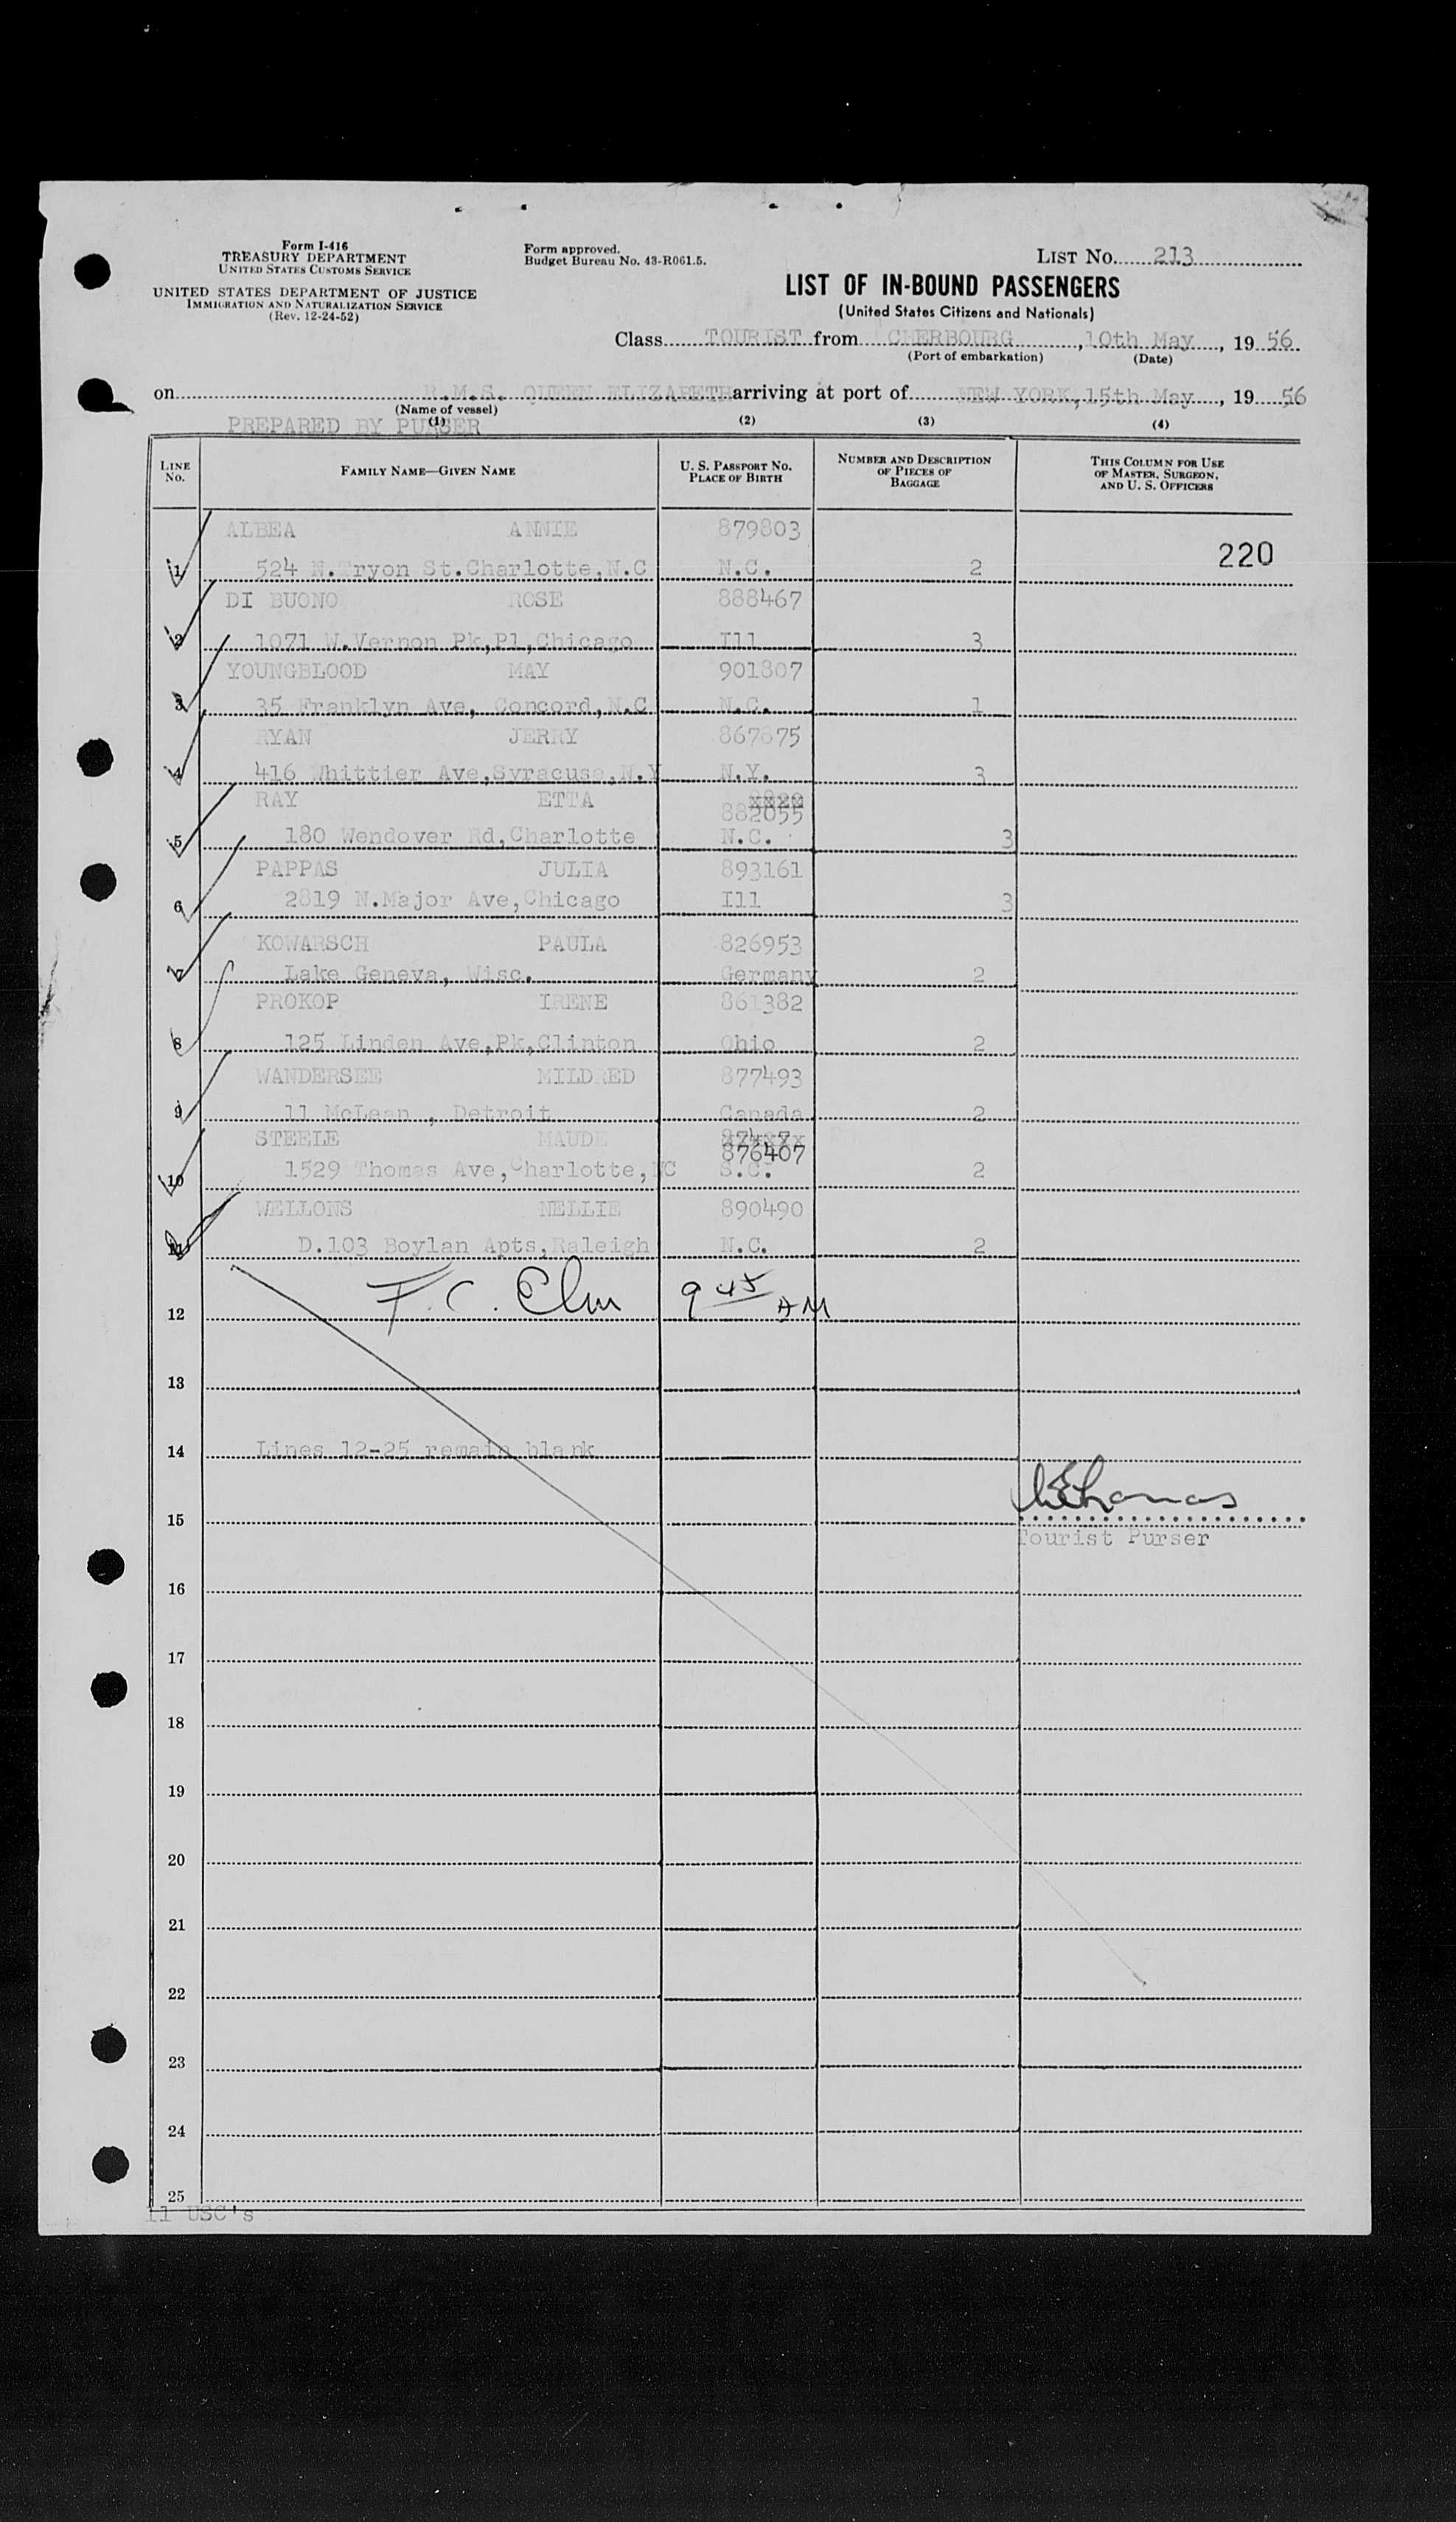 Form I-416
TREASURY DEPARTMENT
UNITED STATES CUSTOMS SERVICE
UNITED STATES DEPARTMENT OF JUSTICE
IMMIGRATION AND NATURALIZATION SERVICE
(Rev. 12-24-52)
Form approved.
Budget Bureau No. 43-R061.5.
LIST NO. 213
LIST OF IN-BOUND PASSENGERS
(United States Citizens and Nationals)
Class TOURIST from CHERBOURG, 10th May, 19 56
(Port of embarkation) (Date)
on R.M.S. QUEEN ELIZABETH arriving at port of NEW YORK, 15th May, 19 56
(Name of vessel)
PREPARED BY PURSER
(1) (2) (3) (4)
LINE NO. FAMILY NAME—GIVEN NAME U. S. PASSPORT NO. PLACE OF BIRTH NUMBER AND DESCRIPTION OF PIECES OF BAGGAGE THIS COLUMN FOR USE OF MASTER, SURGEON, AND U. S. OFFICERS
ALBEA ANNIE 879803
220
1 524 N.Tryon St.Charlotte,N.C N.C. 2
DI BUONO ROSE 888467
2 1071 W.Vernon Pk,Pl,Chicago Ill 3
YOUNGBLOOD MAY 901807
3 35 Franklyn Ave, Concord,N.C N.C. 1
RYAN JERRY 867875
4 416 Whittier Ave,Syracuse,N.Y N.Y. 3
RAY ETTA
882055
5 180 Wendover Rd,Charlotte N.C. 3
PAPPAS JULIA 893161
6 2819 N.Major Ave,Chicago Ill 3
KOWARSCH PAULA 826953
7 Lake Geneva, Wisc. Germany 2
PROKOP IRENE 861382
8 125 Linden Ave,Pk,Clinton Ohio 2
WANDERSEE MILDRED 877493
9 11 McLean , Detroit Canada 2
STEELE MAUDE
876407
10 1529 Thomas Ave,Charlotte,NC S.C. 2
WELLONS NELLIE 890490
11 D.103 Boylan Apts,Raleigh N.C. 2
F. C. Elm 9 45 AM
12
13
14 Lines 12-25 remain blank
15
Tourist Purser
16
17
18
19
20
21
22
23
24
25
11 USC's